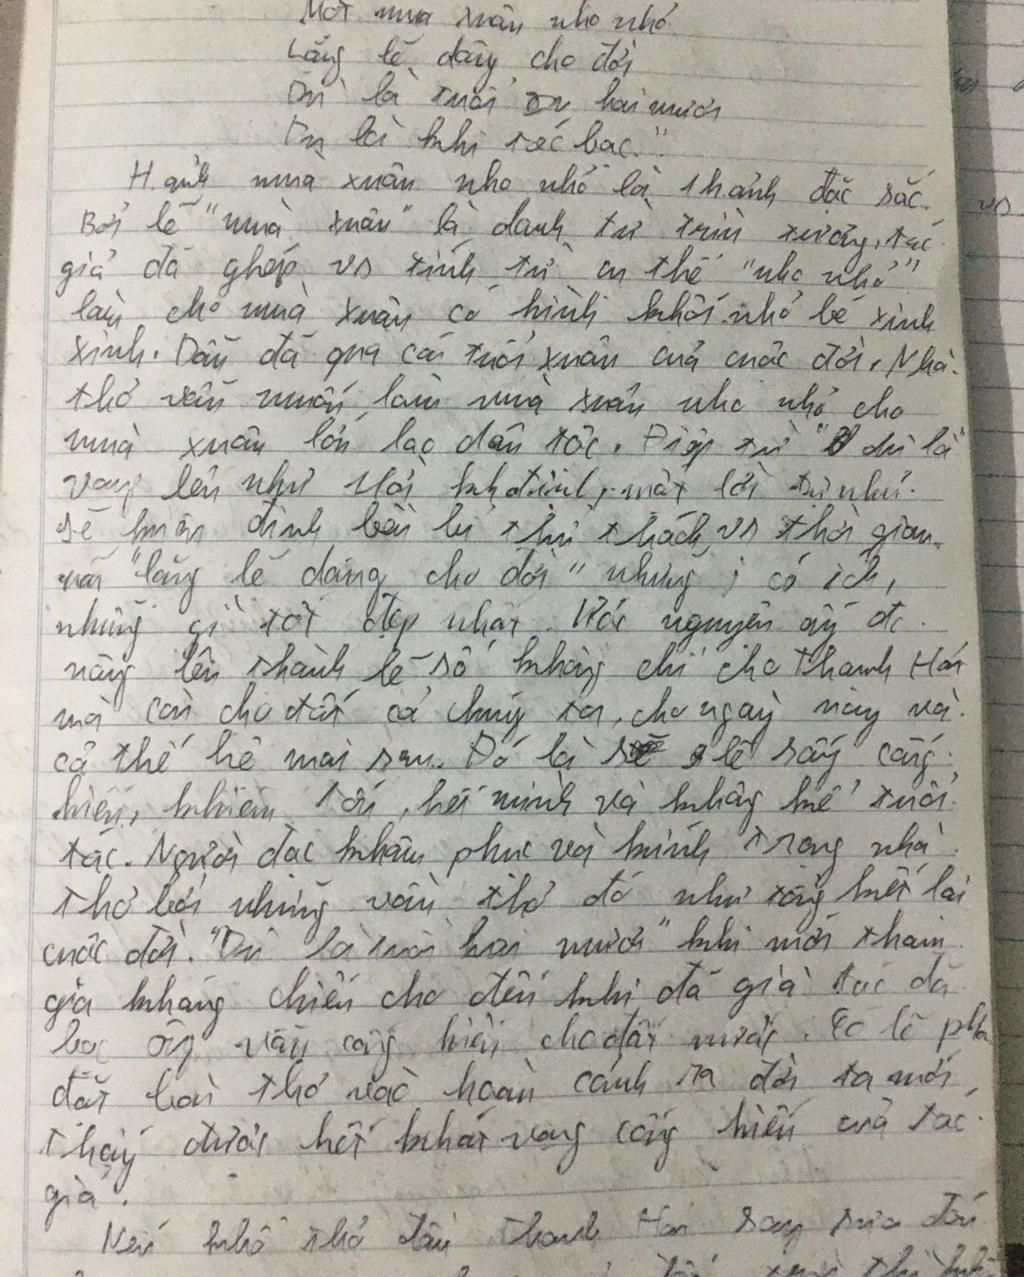 Một mùa xuân nho nhỏ
Lặng lẽ dâng cho đời
Dù là tuổi hai mươi
Dù là khi tóc bạc."
H.ảnh mùa xuân nho nhỏ là 1 hảnh đặc sắc.
Bởi lẽ "mùa xuân" là danh từ trừu tượng, tác
giả đã ghép vs tính từ cụ thể "nho nhỏ"
làm cho mùa xuân có hình khối nhỏ bé xinh
xinh. Dẫu đã qua cái tuổi xuân của cuộc đời, Nhà
thơ vẫn muốn làm mùa xuân nho nhỏ cho
mùa xuân lớn lao dân tộc. Điệp từ "dù là"
vang lên như 1 lời kh định, một lời tự nhủ
sẽ kiên định bất thử thách vs thời gian
"lặng lẽ dâng cho đời" những j có ích,
những gì tốt đẹp nhất. Ước nguyện ấy đc
nâng lên thành lẽ số không chỉ cho Thanh Hải
mà còn cho tất cả chúng ta, cho ngày nay và
cả thế hệ mai sau. Đó là lẽ sống cống
hiến, khiêm tốn, hết mình và không kể tuổi
tác. Người đọc khâm phục và kính trọng nhà
thơ bởi những vần thơ đó như tổng kết lại
cuộc đời. "Dù là tuổi hai mươi" khi mới tham
gia kháng chiến cho đến khi đã già tóc đã
bạc ông vẫn cống hiến cho đất nước. Có lẽ phải
đặt bài thơ vào hoàn cảnh ra đời ta mới
thấy được hết khát vọng cống hiến của tác
giả.
Nếu khổ thơ đầu Thanh Hải say sưa đón